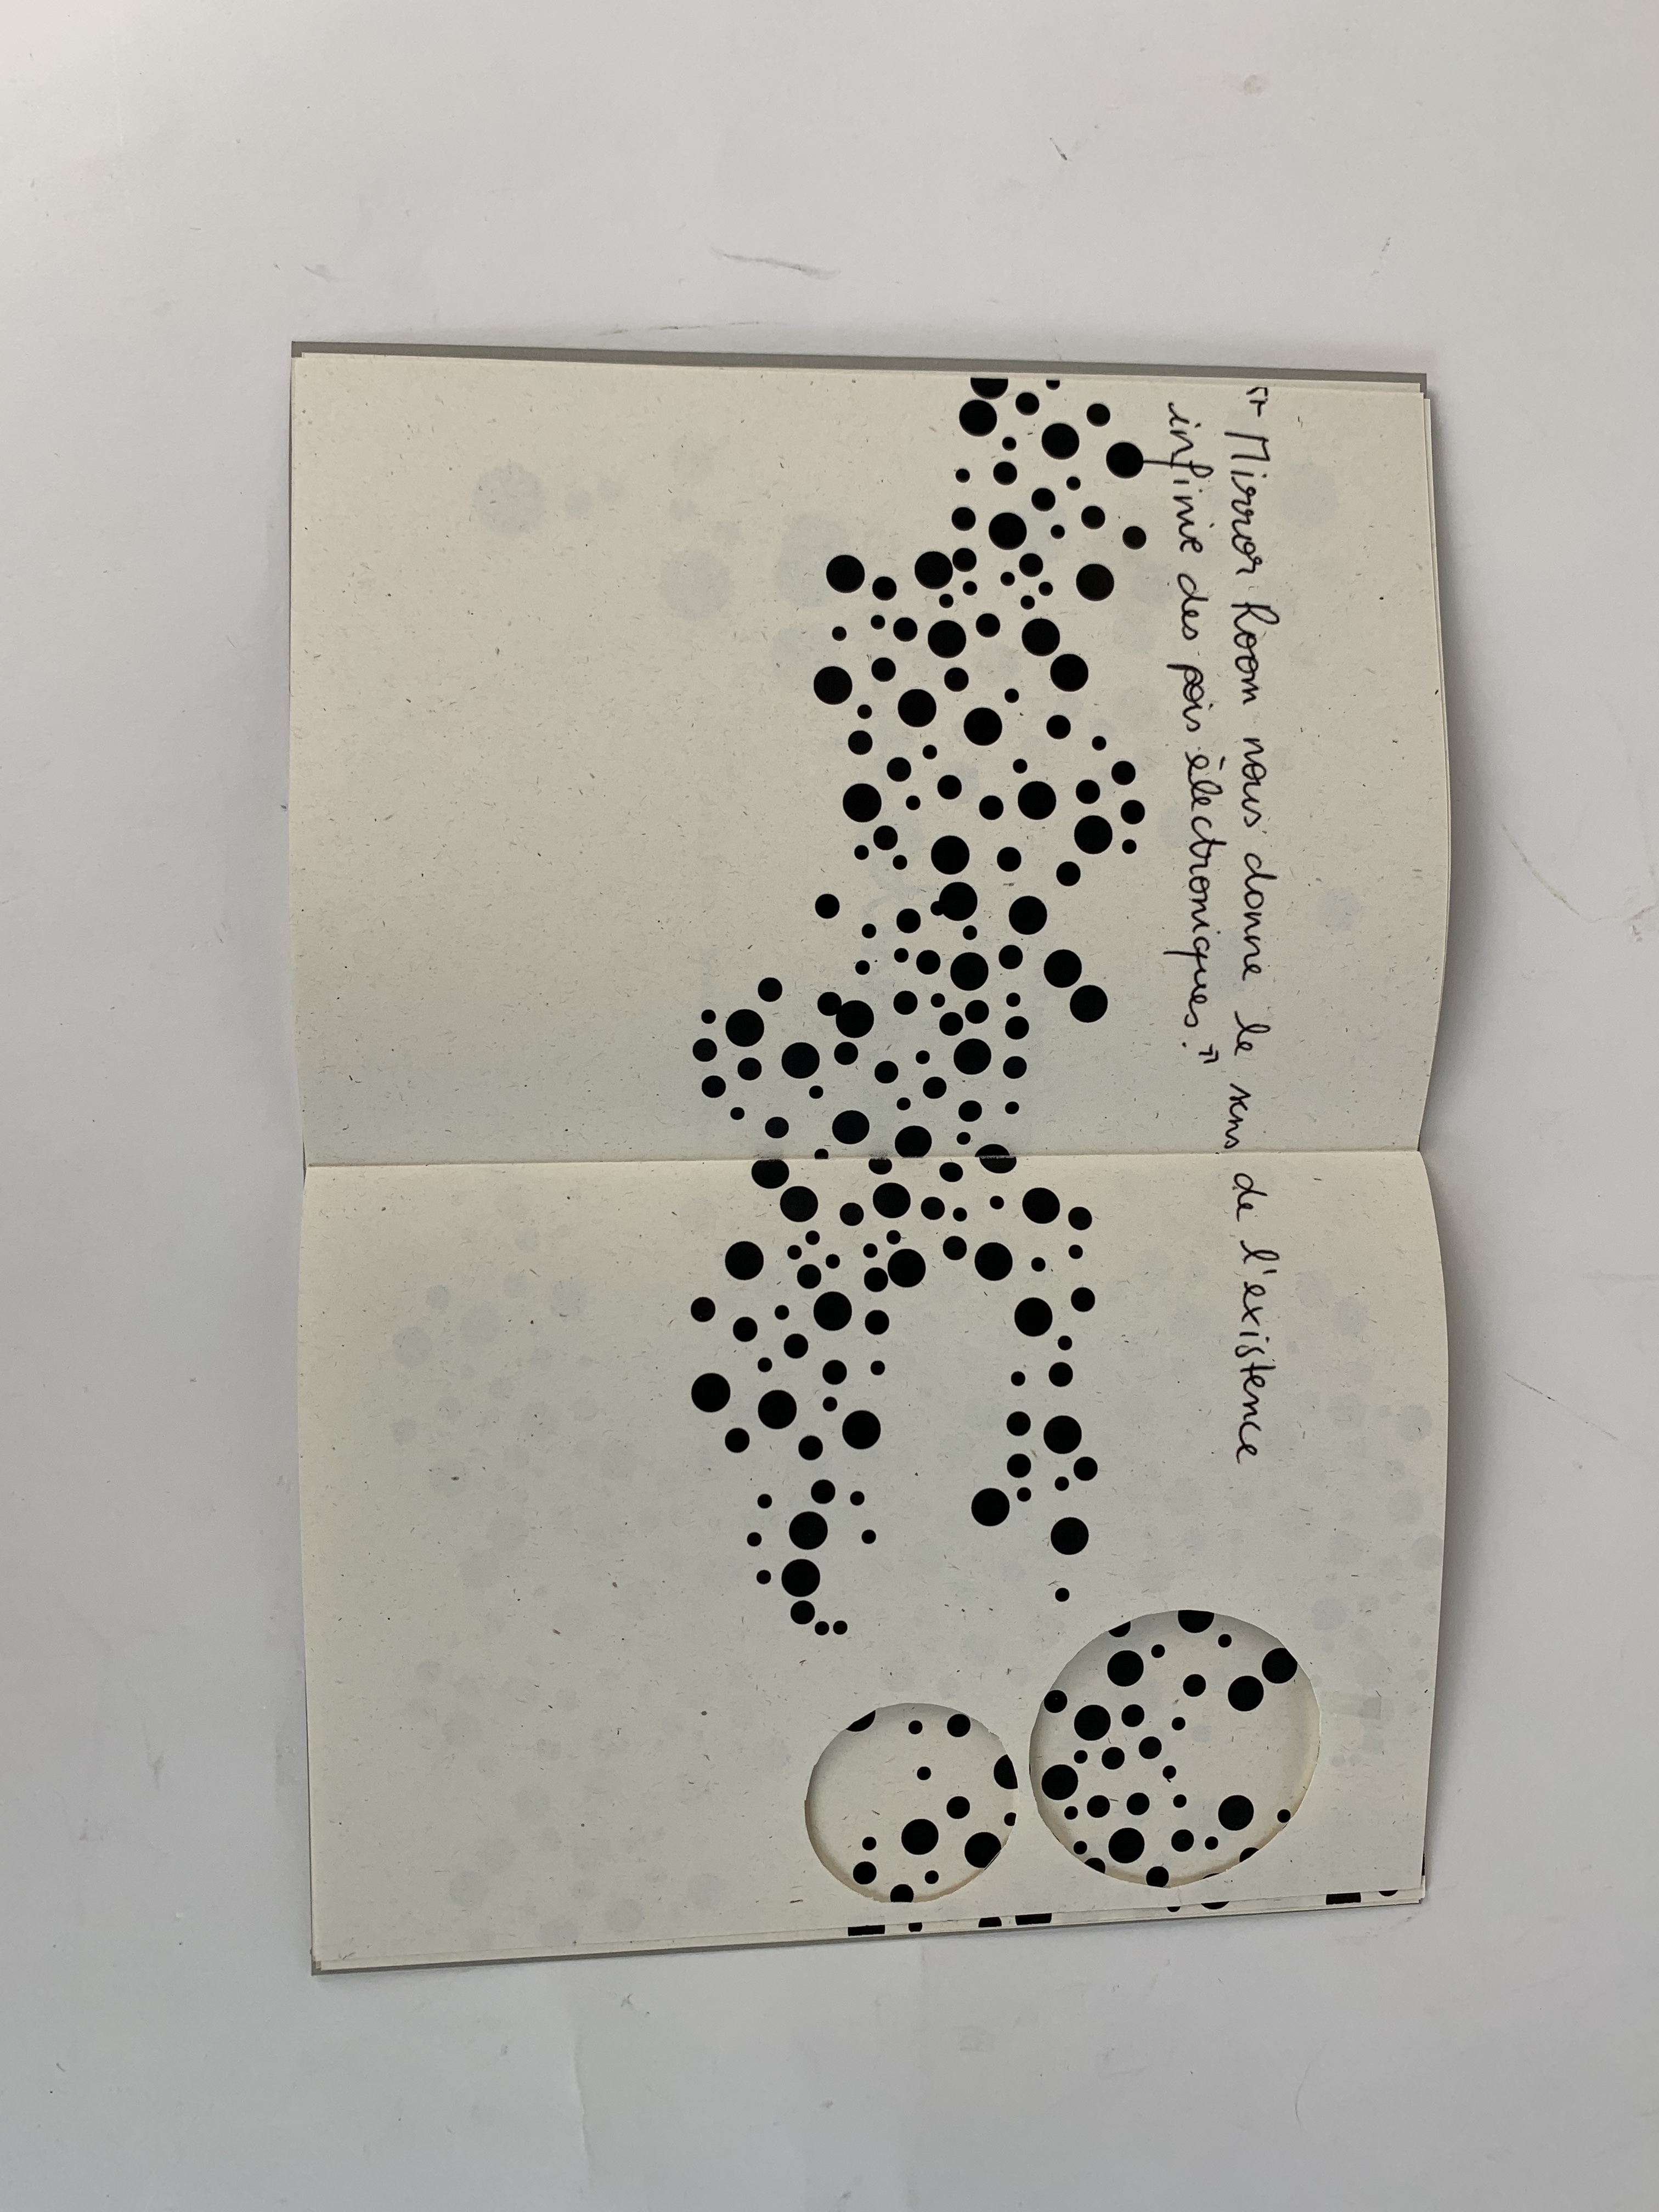 " Mirror Room nous donne le sens de l'existence
infinie des pois électroniques. "